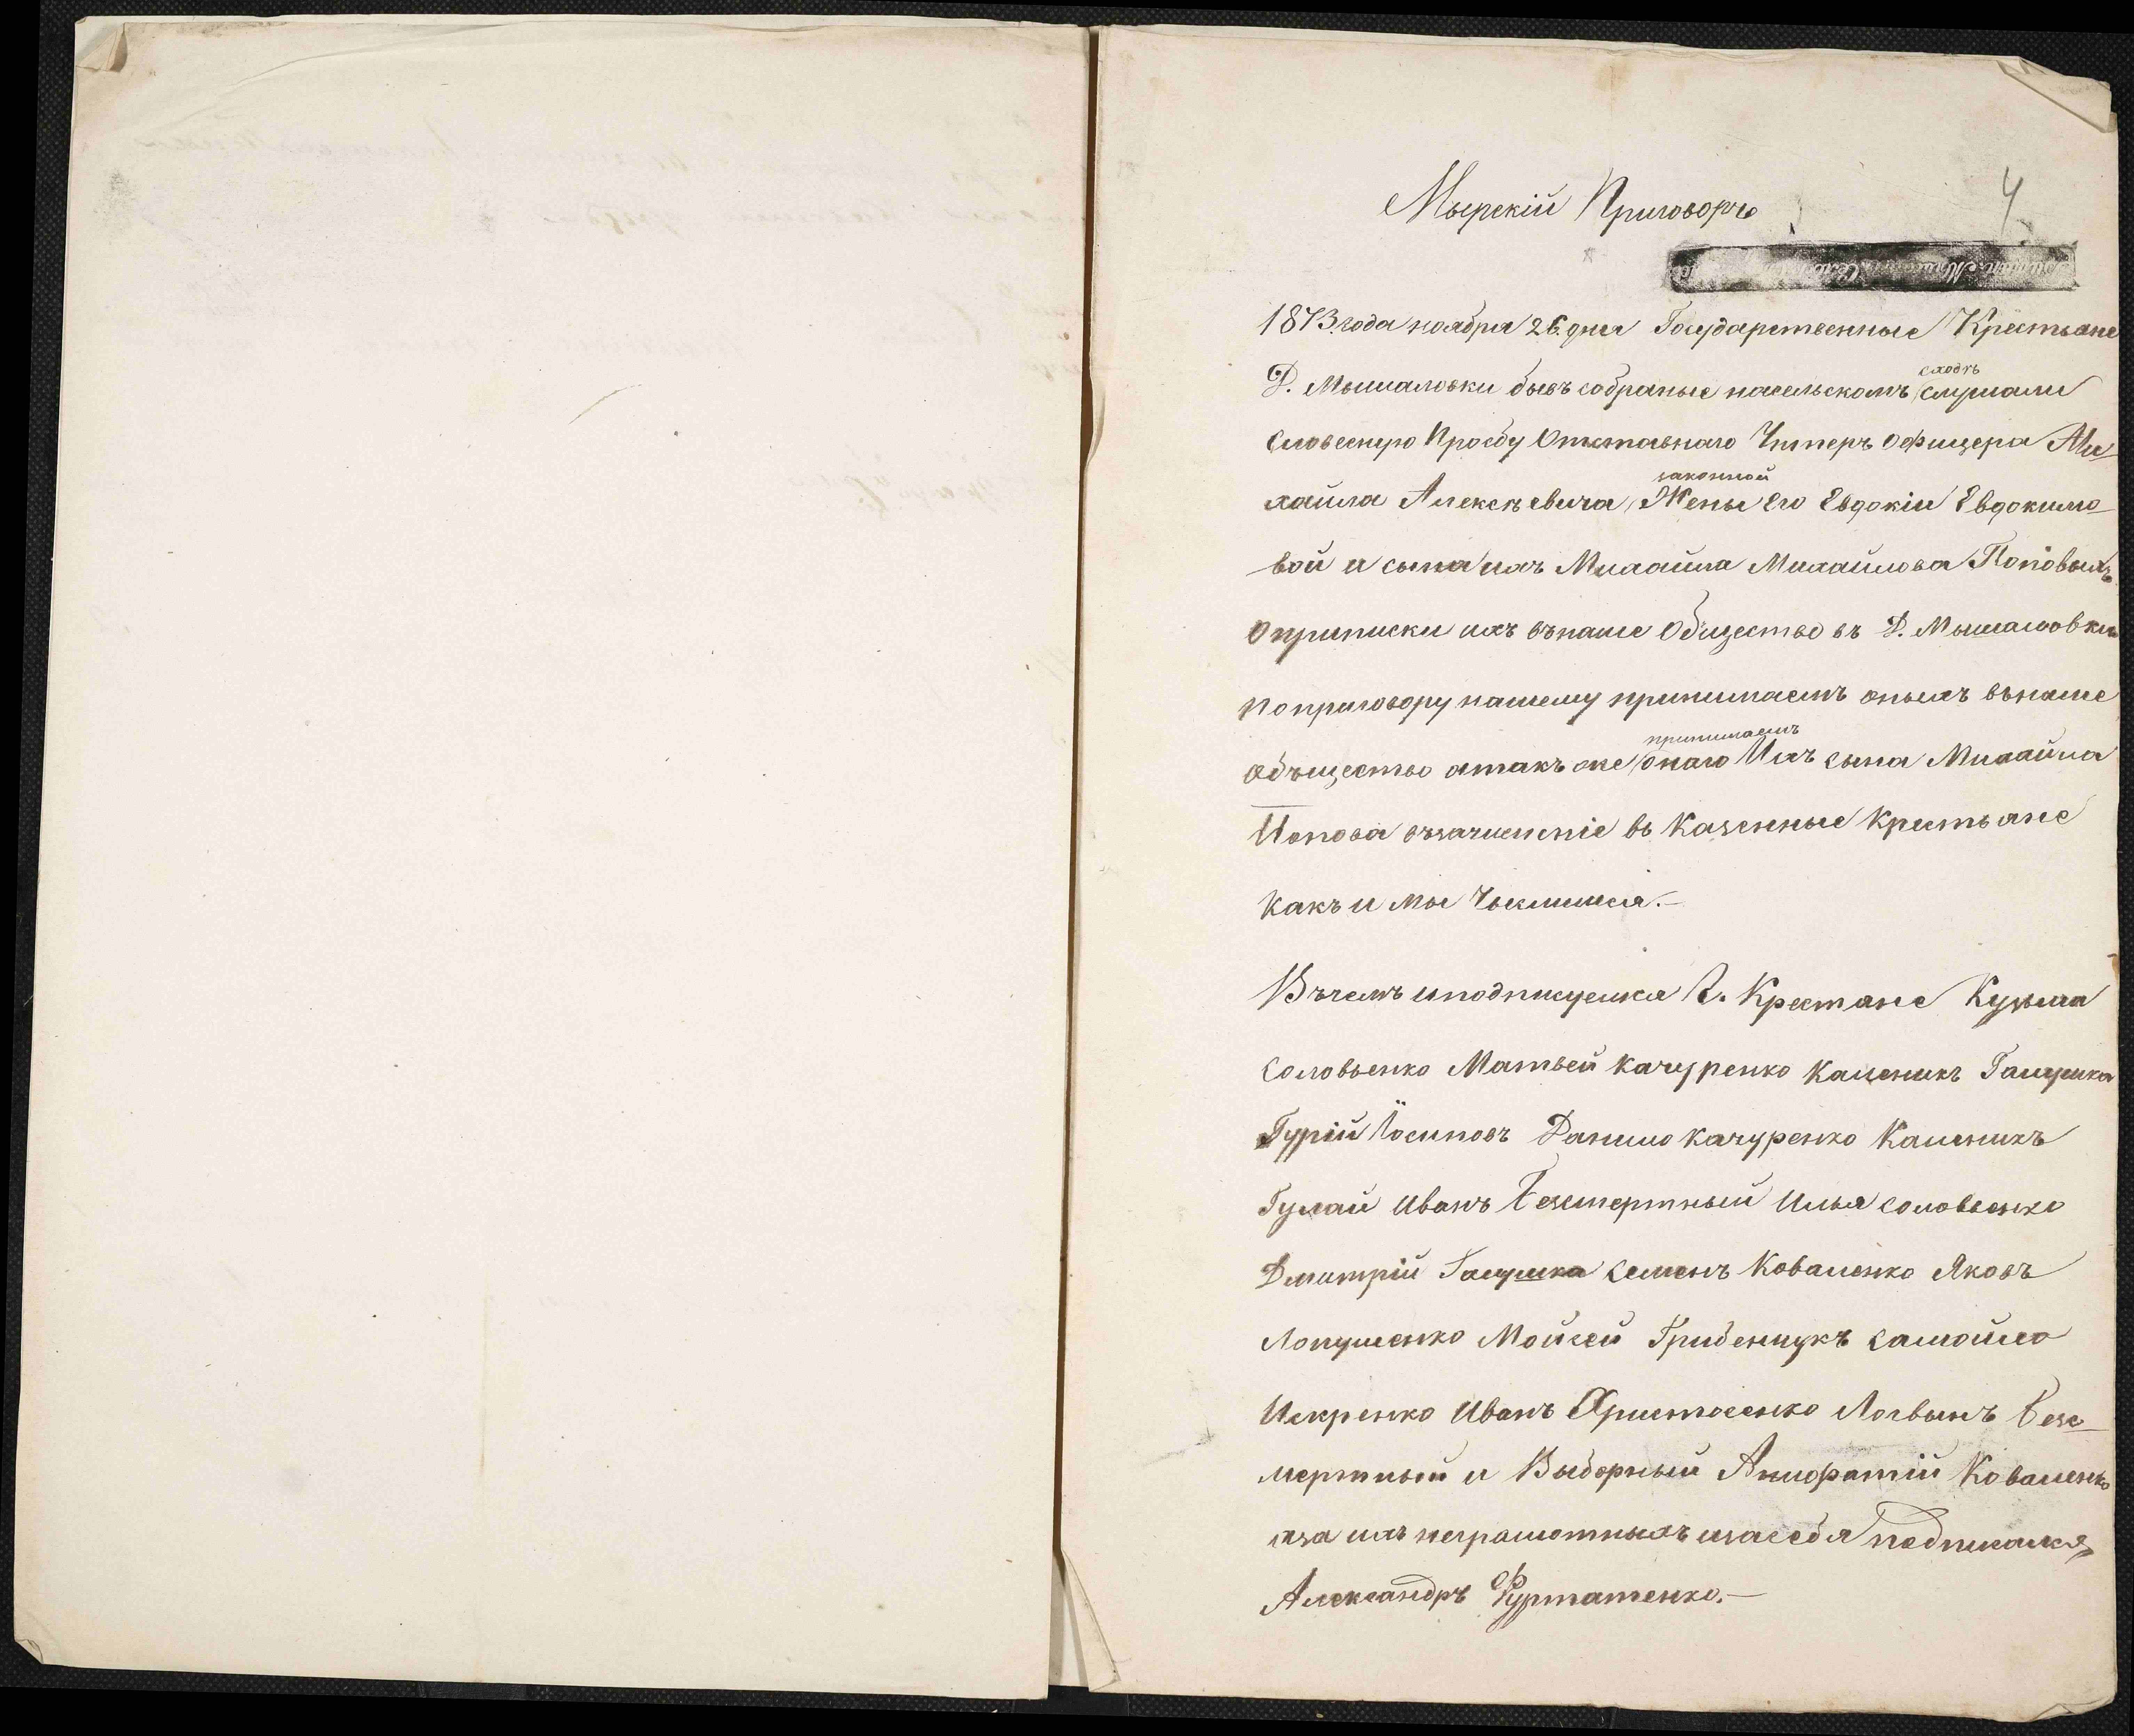 Мырскій Приговоръ
4
1873 года ноября 26 дня Государственные Крестьане
Д. Мышаловки бывъ собраные насельскомъ сходѣ слушали
Словесную Прозбу Отставнаго Унтеръ Офицера Ми-
хайла Алексѣевича, законной Жены Его Евдокіи Евдокимо-
вой и сына ихъ Михайла Михайлова Поповыхъ
О приписки ихъ внаше Общество въ Д. Мышаловки
По приговору нашему принимаемъ оныхъ внаше
Общество атакъ же принимаемъ онаго Ихъ сына Михайла
Попова взачисленіе въ Казенные Крестьане
какъ и мы
Въчемъ иподписуемся Г. Крестане Кузьма
Соловьенко Матвей Качуренко Каленикъ Галушка
Гурій Іосиповъ Данило Качуренко Каленикъ
Гулай Иванъ Безсмертный Илья Соловьенко
Дмитрій Галушка Семенъ Коваленко Яковъ
Лопушенко Мойсей Гриденчукъ Самойло
Искренко Иванъ Христосенко Логвынъ Безс-
мертный и Выборный Коваленко
аза ихъ неграмотныхъ изасебя подписался
Александръ Фурташенко.—